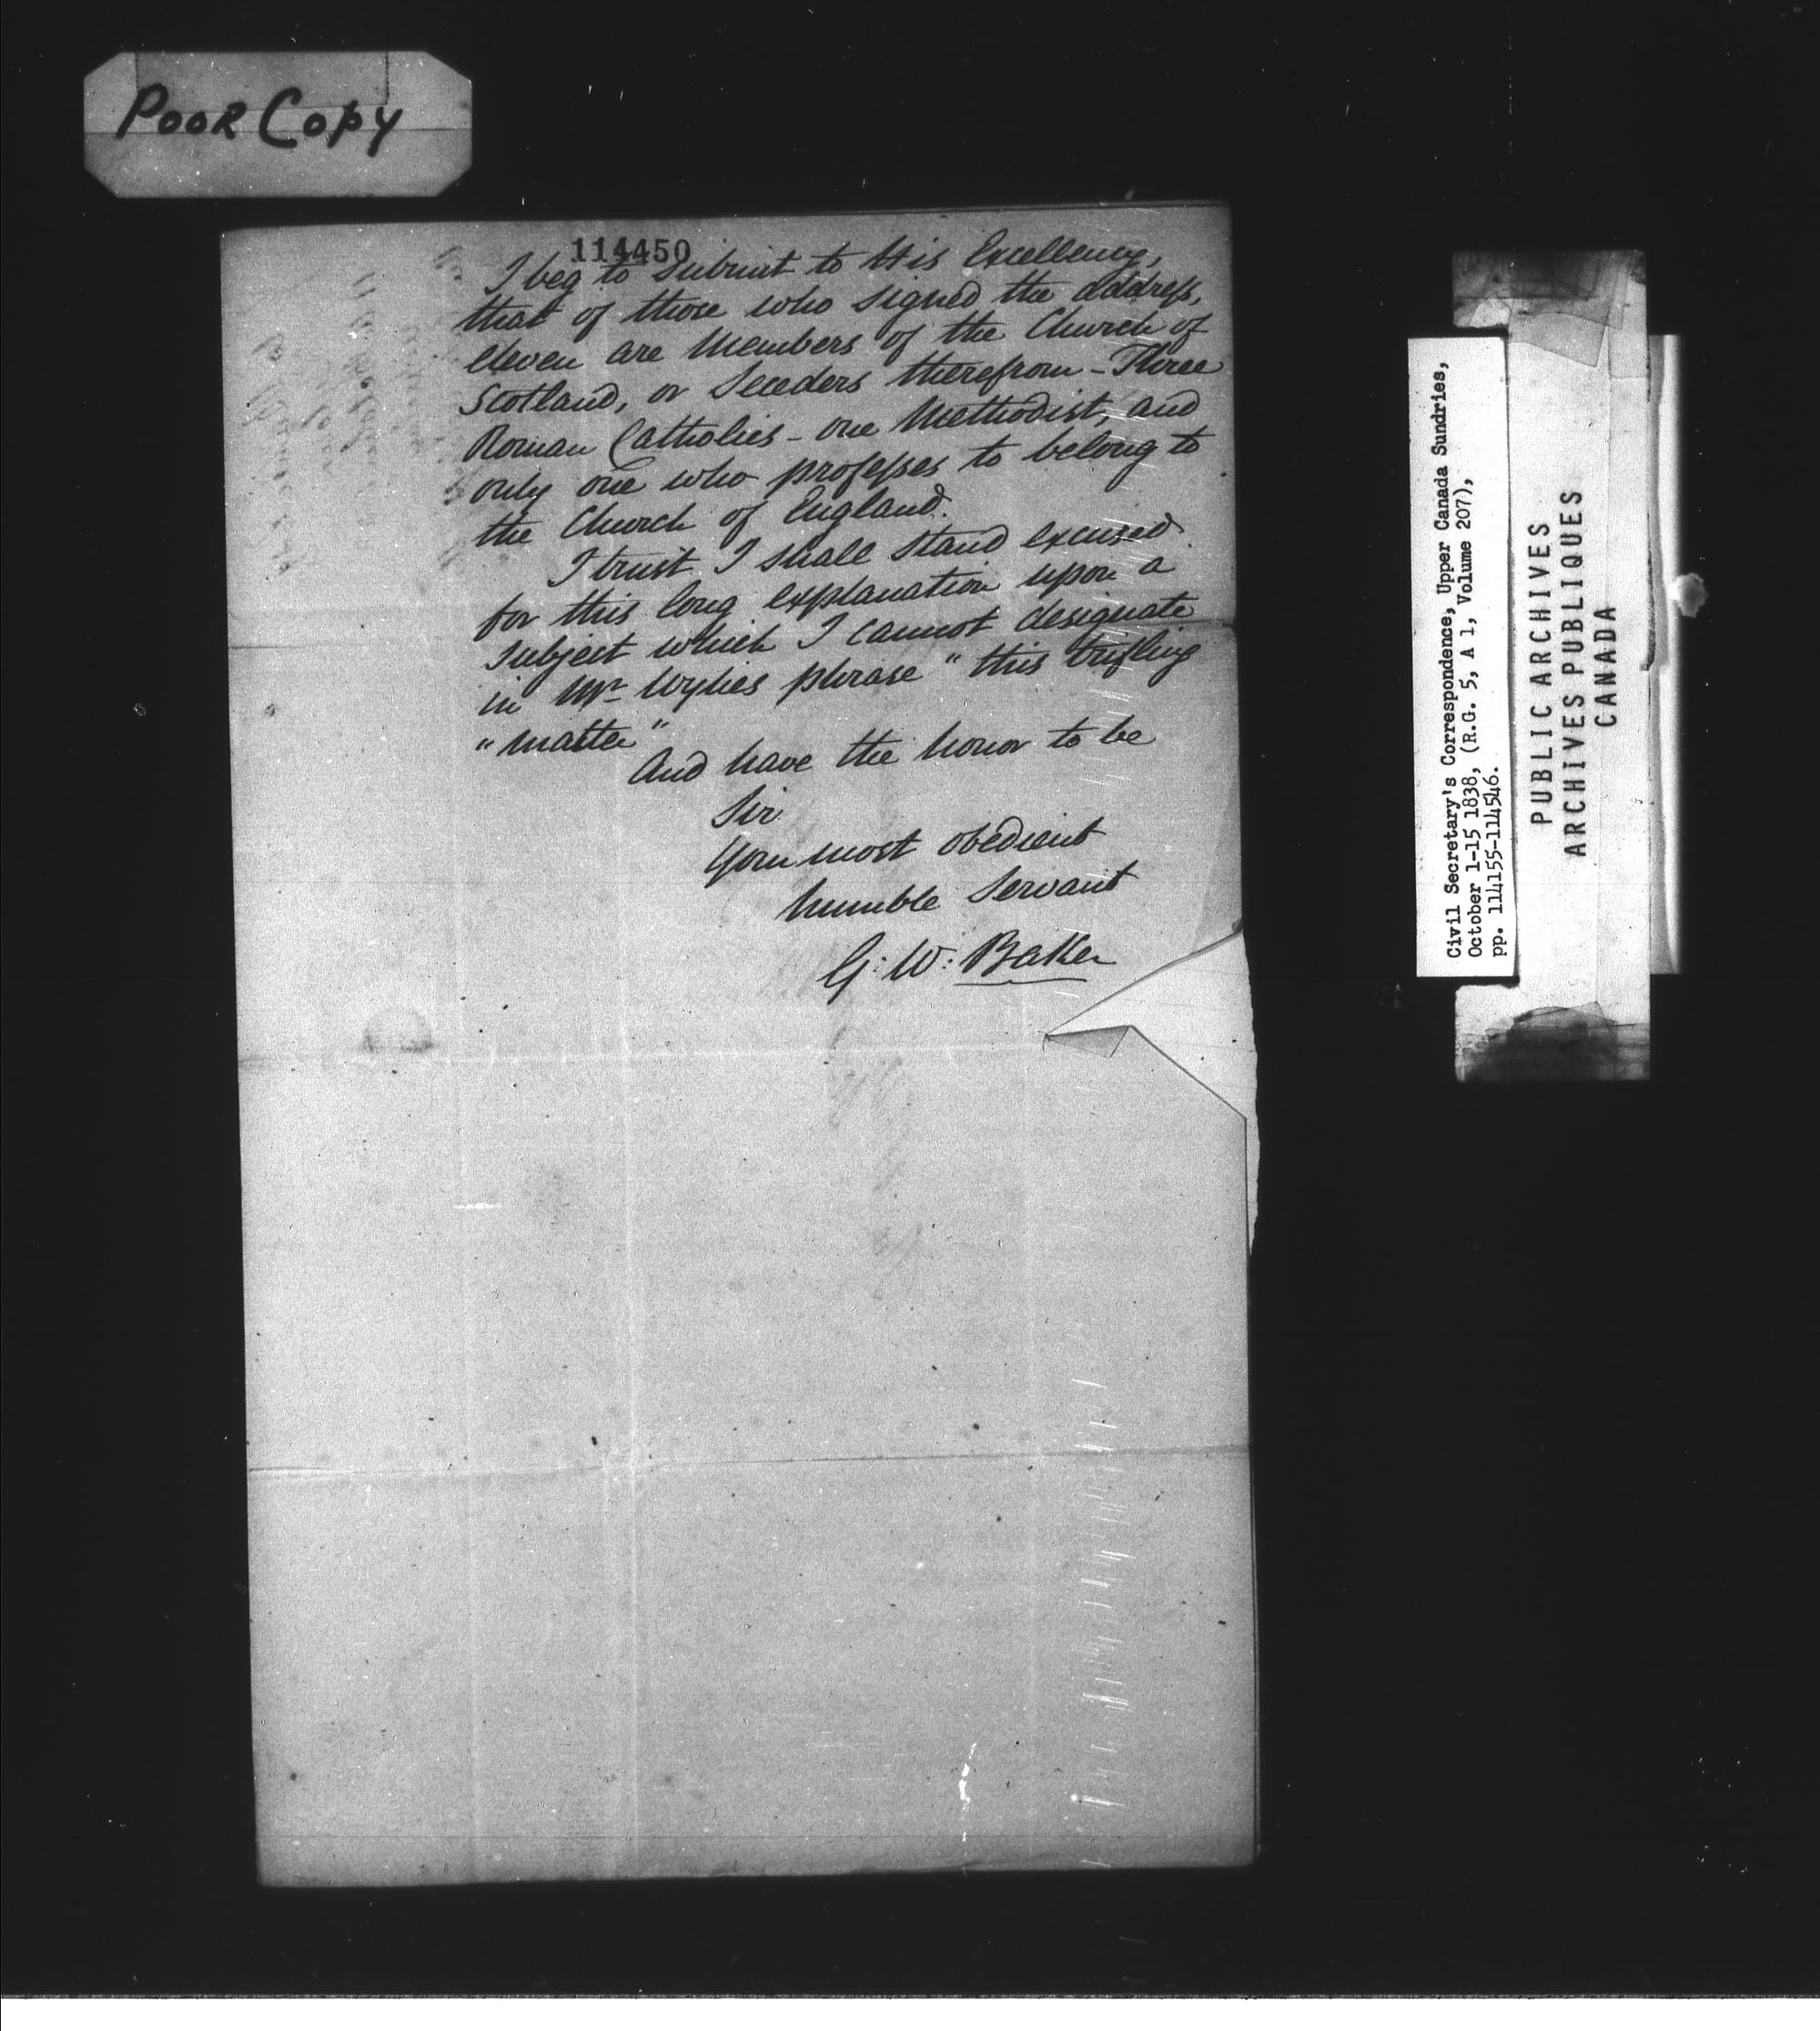 Poor Copy
114450
I beg to submit to His Excellency,
that of those who signed the address,
eleven are Members of the Church of
Scotland, or Seceders therefrom - Three
Roman Catholics - one Methodist, and
only one who professes to belong to
the Church of England.
I trust I shall stand excused
for this long explanation upon a
subject which I cannot designate
in Mr Wylies phrase "this trifling
"matter"
And have the honor to be
Sir
Your most obedient
humble Servant
G: W: Baker
Civil Secretary's Correspondence, Upper Canada Sundries,
October 1-15 1838, (R.G. 5, A 1, Volume 207),
pp. 114155-114546.
PUBLIC ARCHIVES
ARCHIVES PUBLIQUES
CANADA